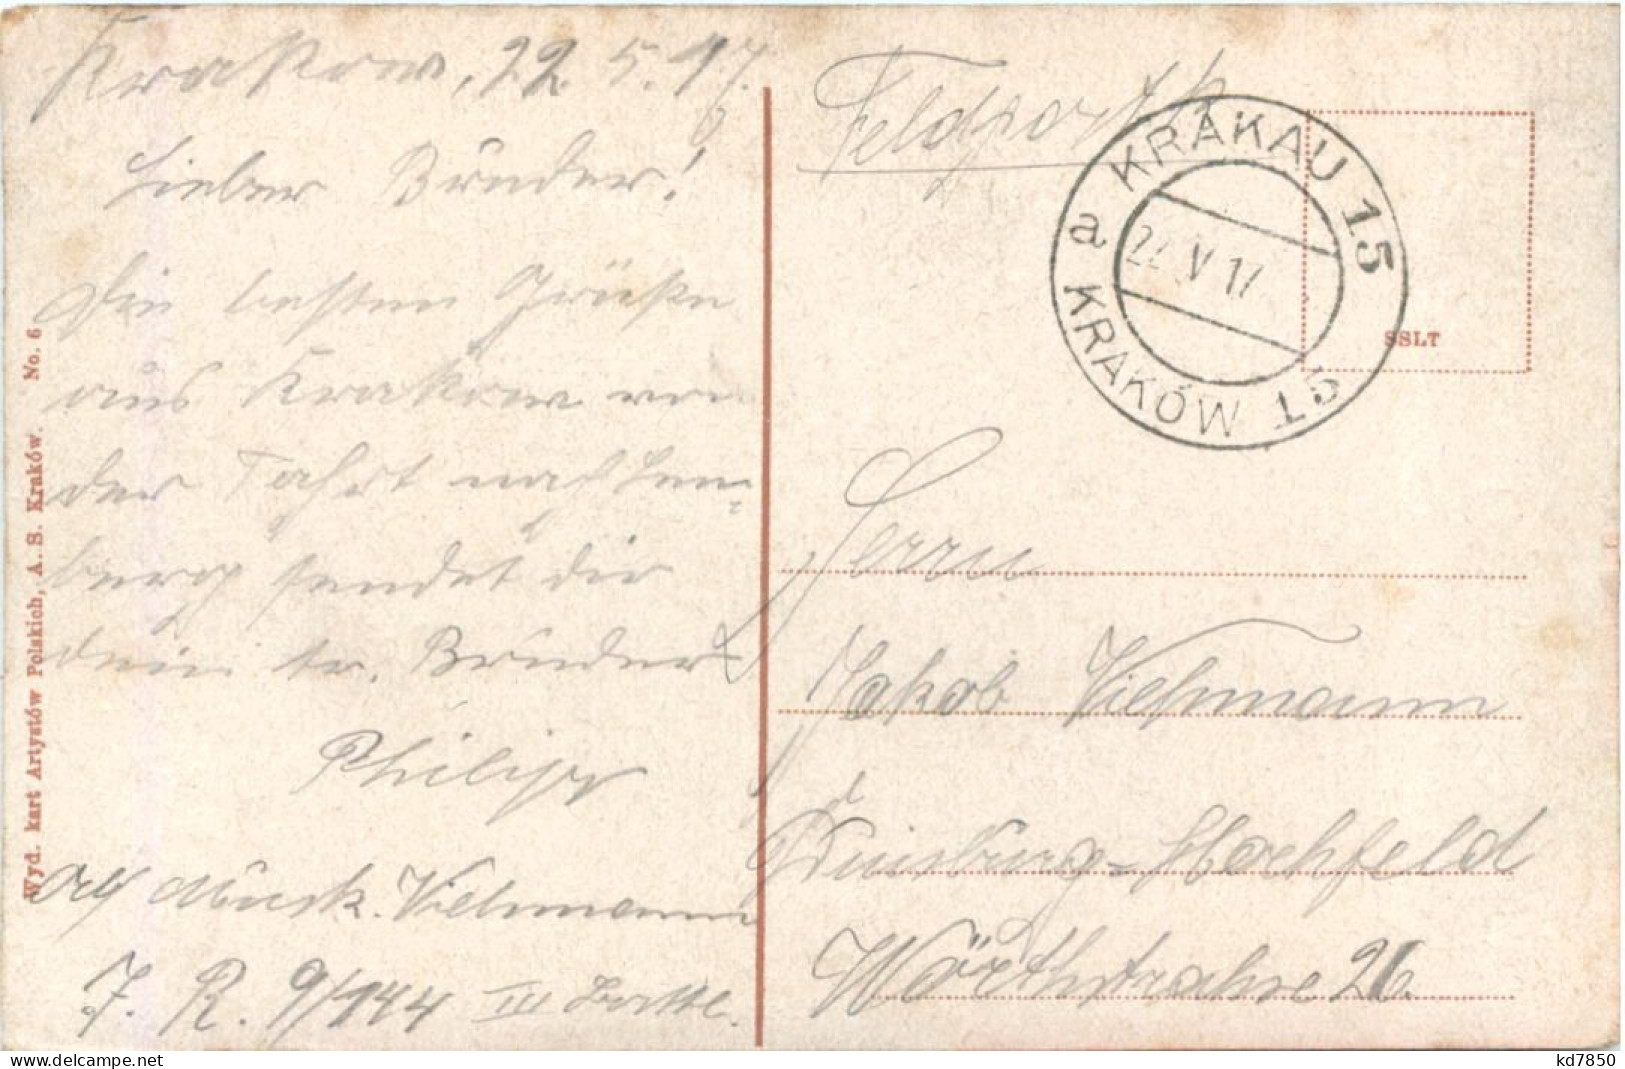 Krakow, 22.5.17.
Lieber Bruder!
Die besten Grüße
aus Krakow von
der Fahrt nach Lem-
berg sendet dir
dein tr. Bruder
Philipp
Musk. Viehmann
J. R. 9/144 III
Wyd. kart Artystów Polskich, A. S. Kraków. No. 6
Feldpost
KRAKAU 15
a
22 V 17
KRAKÓW 15
SSLT
Herrn
Jakob Viehmann
Duisburg=Hochfeld
Wörthstrahse 26.
delcampe.net
kd7850